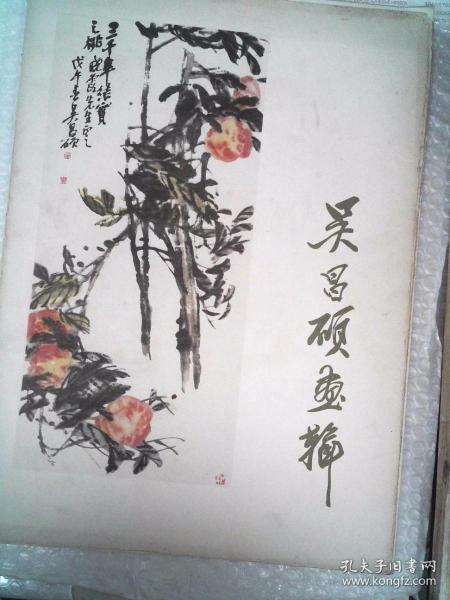 三千年结实
之桃
戊午春吴昌硕
吴昌硕画辑
孔夫子旧书网
www.kongfz.com